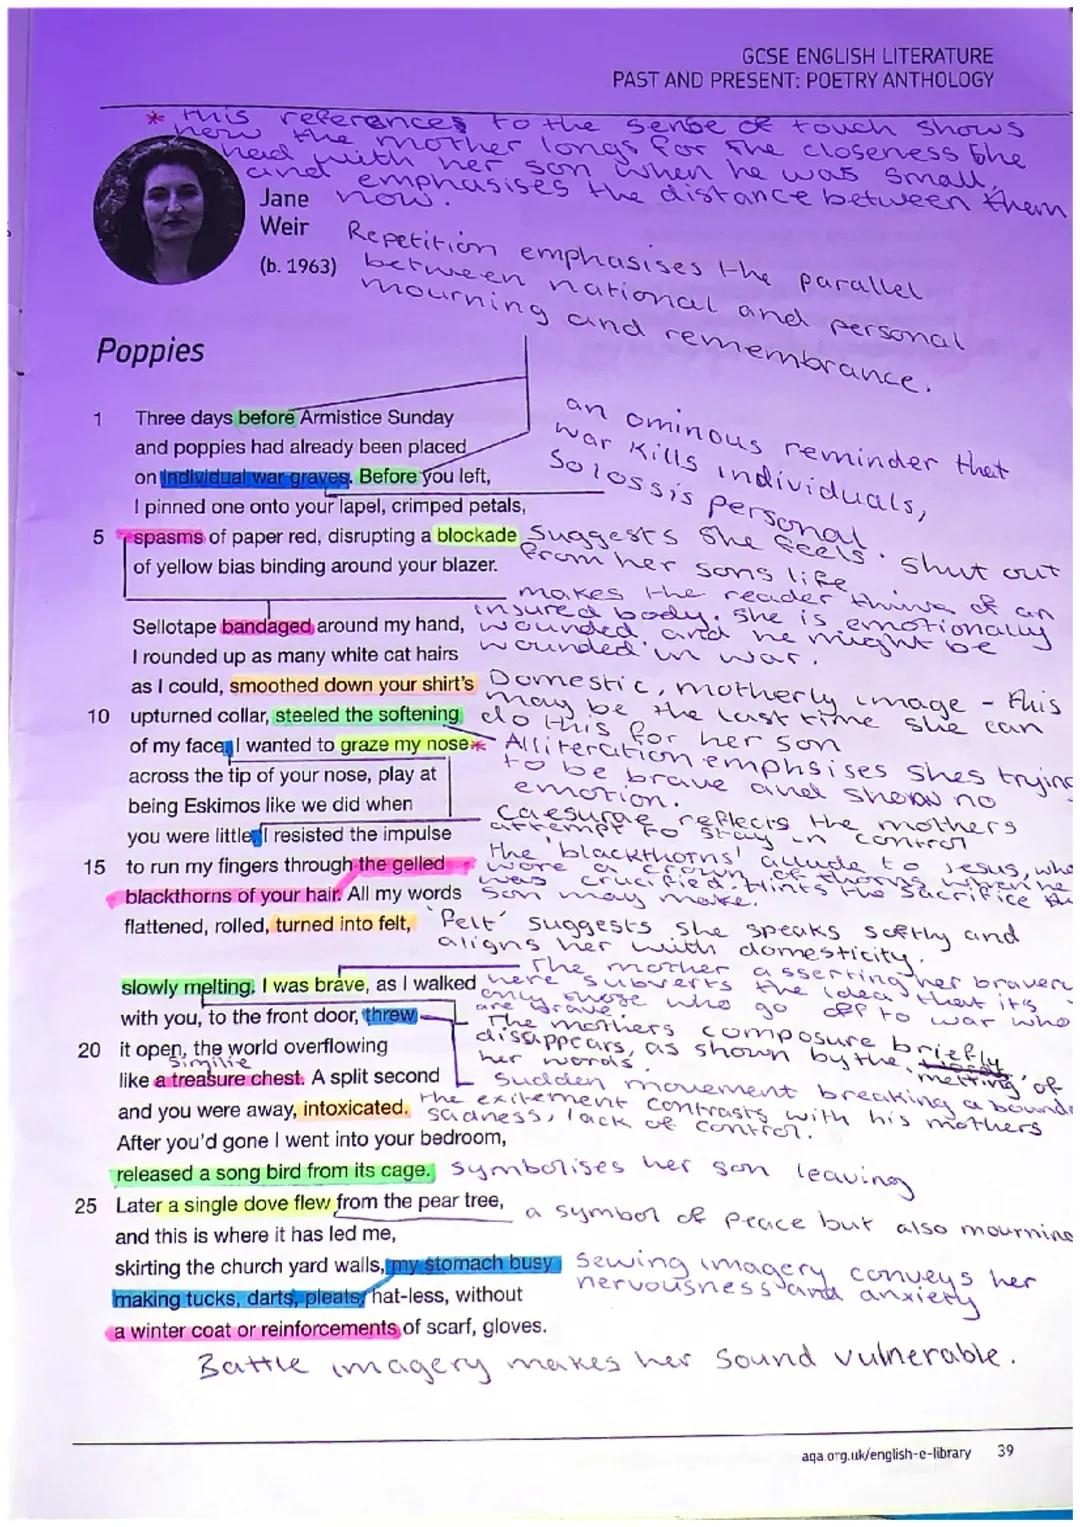 GCSE ENGLISH LITERATURE
PAST AND PRESENT: POETRY ANTHOLOGY
* this references to the sense of touch shows
how the mother longs for the closeness she
had with her son when he was small,
and emphasises the distance between them
now.
Jane
Weir
(b. 1963)
Repetition emphasises the parallel
between national and personal
mourning and remembrance.
Poppies
1 Three days before Armistice Sunday
and poppies had already been placed
on individual war graves. Before you left,
I pinned one onto your lapel, crimped petals,
an ominous reminder that
war kills individuals,
so loss is personal.
5 spasms of paper red, disrupting a blockade
of yellow bias binding around your blazer.
Suggests she feels shut out
from her sons life
makes the reader think of an
injured body. She is emotionally
wounded and he might be
wounded in war.
Sellotape bandaged around my hand,
I rounded up as many white cat hairs
as I could, smoothed down your shirt's
10 upturned collar, steeled the softening
of my face. I wanted to graze my nose *
across the tip of your nose, play at
being Eskimos like we did when
you were little. I resisted the impulse
15 to run my fingers through the gelled
blackthorns of your hair. All my words
flattened, rolled, turned into felt,
Domestic, motherly image - this
may be the last time she can
do this for her son
Alliteration emphsises shes trying
to be brave and show no
emotion.
caesurae reflects the mothers
attempt to stay in control
the 'blackthorns' allude to Jesus, who
wore a crown of thorns when he
was crucified. Hints the sacrifice the
son may make.
'felt' suggests she speaks softly and
aligns her with domesticity.
slowly melting. I was brave, as I walked
with you, to the front door, threw
20 it open, the world overflowing
similie
like a treasure chest. A split second
and you were away, intoxicated.
After you'd gone I went into your bedroom,
released a song bird from its cage.
25 Later a single dove flew from the pear tree,
and this is where it has led me,
skirting the church yard walls, my stomach busy
making tucks, darts, pleats, hat-less, without
a winter coat or reinforcements of scarf, gloves.
The mother asserting her bravery
here subverts the idea that its
only those who go off to war who
are brave.
The mothers composure briefly
disappears, as shown by the 'melting' of
her words.
Sudden movement breaking a bound
the excitement contrasts with his mothers
sadness, lack of control.
symbolises her son leaving
a symbol of peace but also mourning
Sewing imagery conveys her
nervousness and anxiety
Battle imagery makes her sound vulnerable.
aqa.org.uk/english-e-library 39